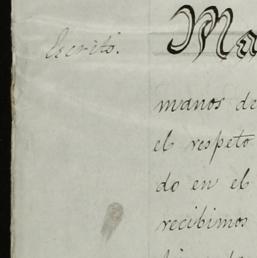 Escrito.
Ma
manos de
el respeto
do en el
recibimos